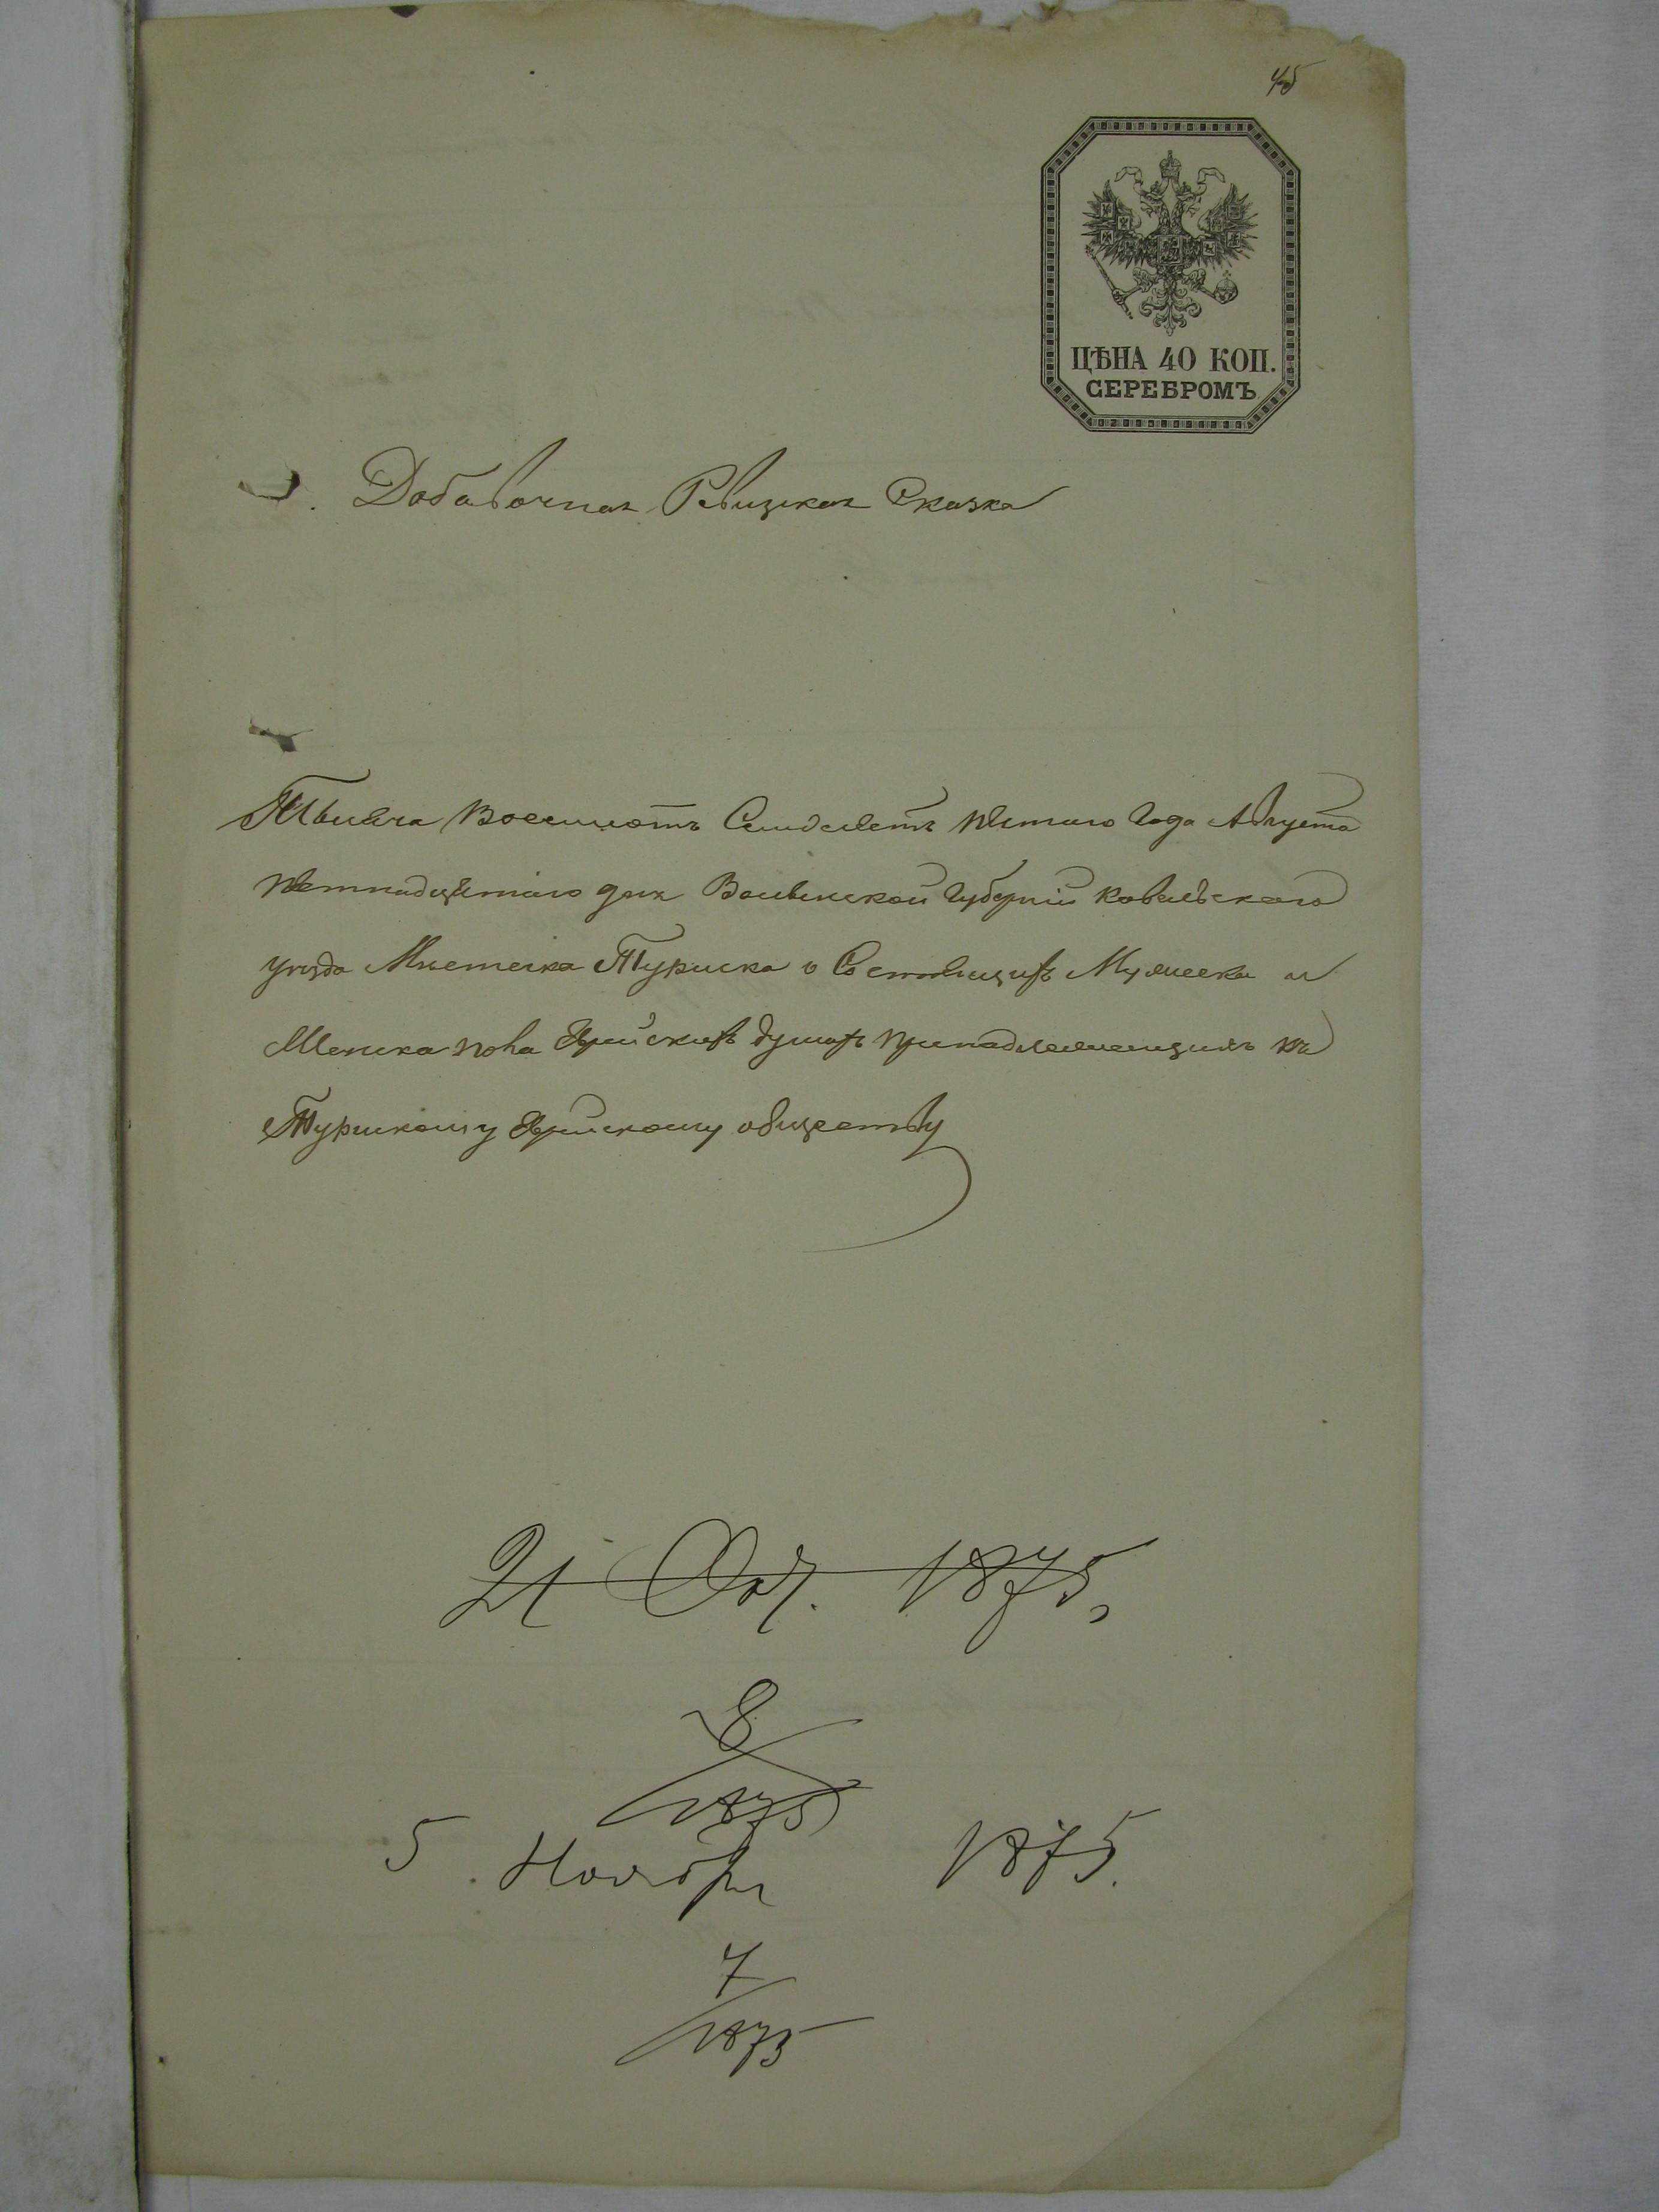 45
ЦѢНА 40 КОП.
СЕРЕБРОМЪ
Добавочная Ревизкая Сказка
Тысяча Восемсотъ Семдесетъ пятаго года Августа
пятнадцятаго дня Волынской Губерніи Ковельского
уѣзда Мѣстечка Туриска о Состоящихъ Мужеска и
Женска пола Еврейскихъ душахъ принадлежащихъ къ
Турискому Еврейскому обществу
21 Окт. 1875,
8
1875
5 Ноября 1875.
7
1875